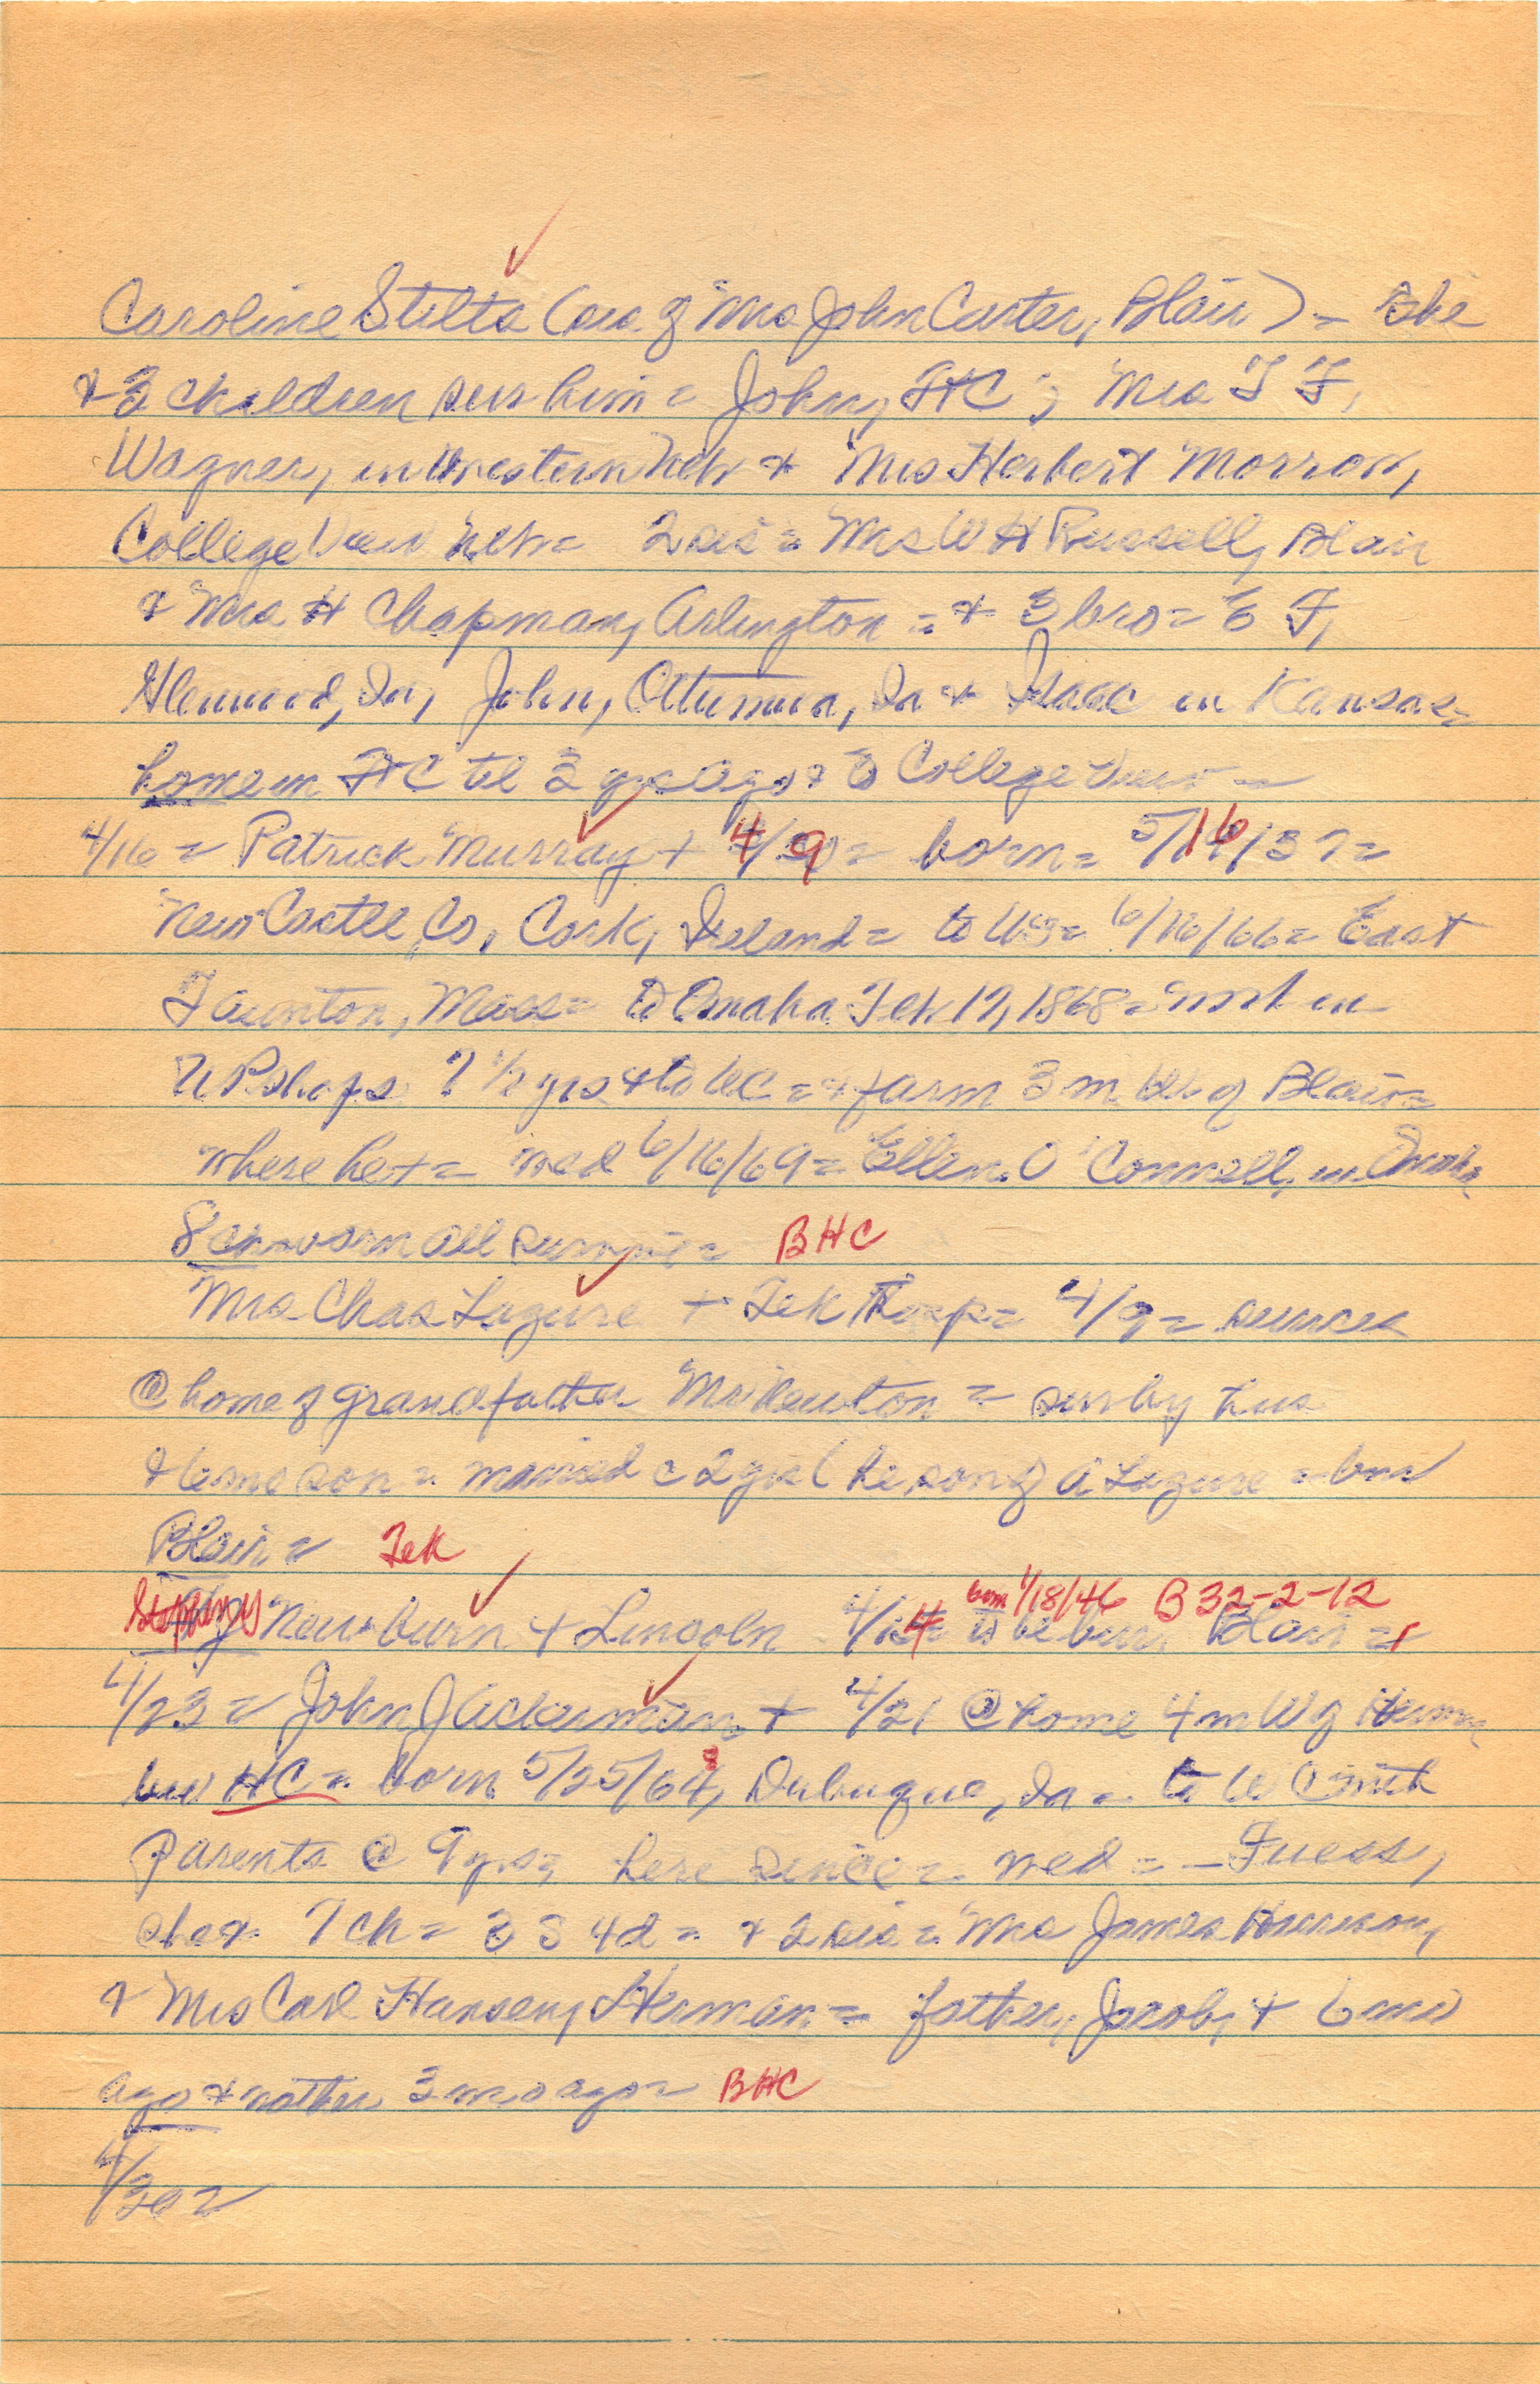 Caroline Stilts (sis of Mrs John Carter, Blair) = She
+ 3 children surv him = John, FtC; Mrs T F,
Wagner, in western Neb + Mrs Herbert Morrow,
College View Neb = 2 sis = Mrs W H Russell, Blair
+ Mrs H Chapman, Arlington = + 3 bro = E F,
Glenwood, Ia, John, Ottumwa, Ia + Isaac in Kansas =
home in FtC til 2 yrs ago + to College View =
4/16 = Patrick Murray + 4/9 = born = 5/16/37 =
New Castle, Co, Cork, Ireland = to US = 6/16/66 = East
Taunton, Mass = to Omaha Feb 17, 1868 = work in
U P shops 7 1/2 yrs + to WC = + farm 3 m W of Blair =
where he + = med 6/16/69 = Ellen O'Connell, in Omaha
8 all survive = BHC
Mrs Chas Lazure + Tek = 4/9 = services
@ home of grandfather Mr Newton = surv by hus
+ 6 mo son = married c 2 yrs (he son of A Lazure = bur
Blair = Tek
Stephen Newburn + Lincoln 4/14 to be bur Blair =
born 1/18/46 B 32-2-12
4/23 = John J Ackerman + 4/21 @ home 4 m W of Herman
bur HC = born 5/25/68, Dubuque, Ia = to WC with
Parents @ 9 yrs, here since = med = - Fuess,
she + 7 ch = 3 S 4 d = + 2 sis = Mrs James Harrison,
+ Mrs Carl Hansen, Herman = father, Jacob, + 6 mo
ago + mother 3 mos ago = BHC
4/30 =